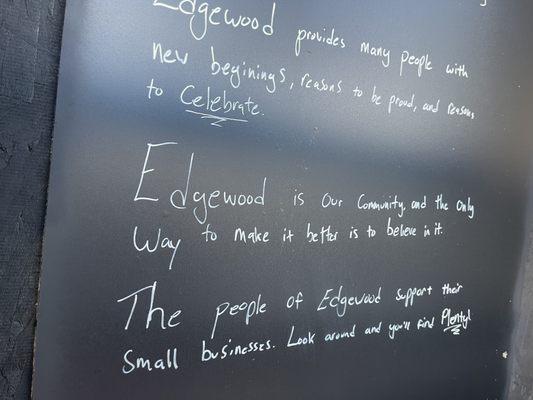 Edgewood provides many people with
new beginings, reasons to be proud, and reasons
to Celebrate.
Edgewood is our Community, and the only
Way to make it better is to believe in it.
The people of Edgewood support their
small businesses. Look around and you'll find Plenty!